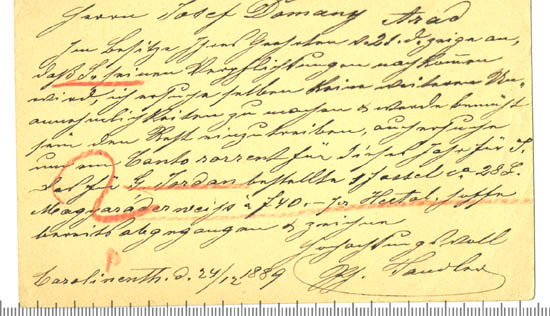 Herrn Josef Domany Arad
Im Besitze Ihres Geehrten v. 21. d. zeige an,
daß S. seinen Verpflichtungen nachkommen
wird, ich ersuche selben keine weiteren Un-
annehmlichkeiten zu machen & werde bemüht
sein den Rest einzutreiben, auch ersuche
um Conto corrent für dieses Jahr für
das für L. Jordan bestellte 1 Fassel ca 28 L.
Magyaráder weiss à f 40.- per Hectol. hoffe
bereits abgegangen & zeichne
Hochachtungsvoll
Carolinenth. d. 24/12 1889